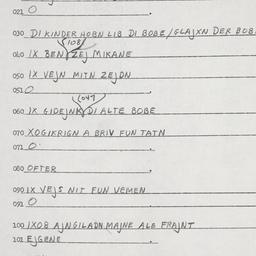 021 O
030 DI KINDER HOBN LIB DI BOBE/GLAJXN DER BOB
108
040 IX BEN ZEJ MIKANE
050 IX VEJN MITN ZEJDN
051 O
047
060 IX GIDEJNK DI ALTE BOBE
070 XOGIKRIGN A BRIV FUN TATN
071 O
080 OFTER
090 IX VEJS NIT FUN VEMEN
091 O
100 IXOB AJNGILADN MAJNE ALE FRAJNT
101 EJGENE